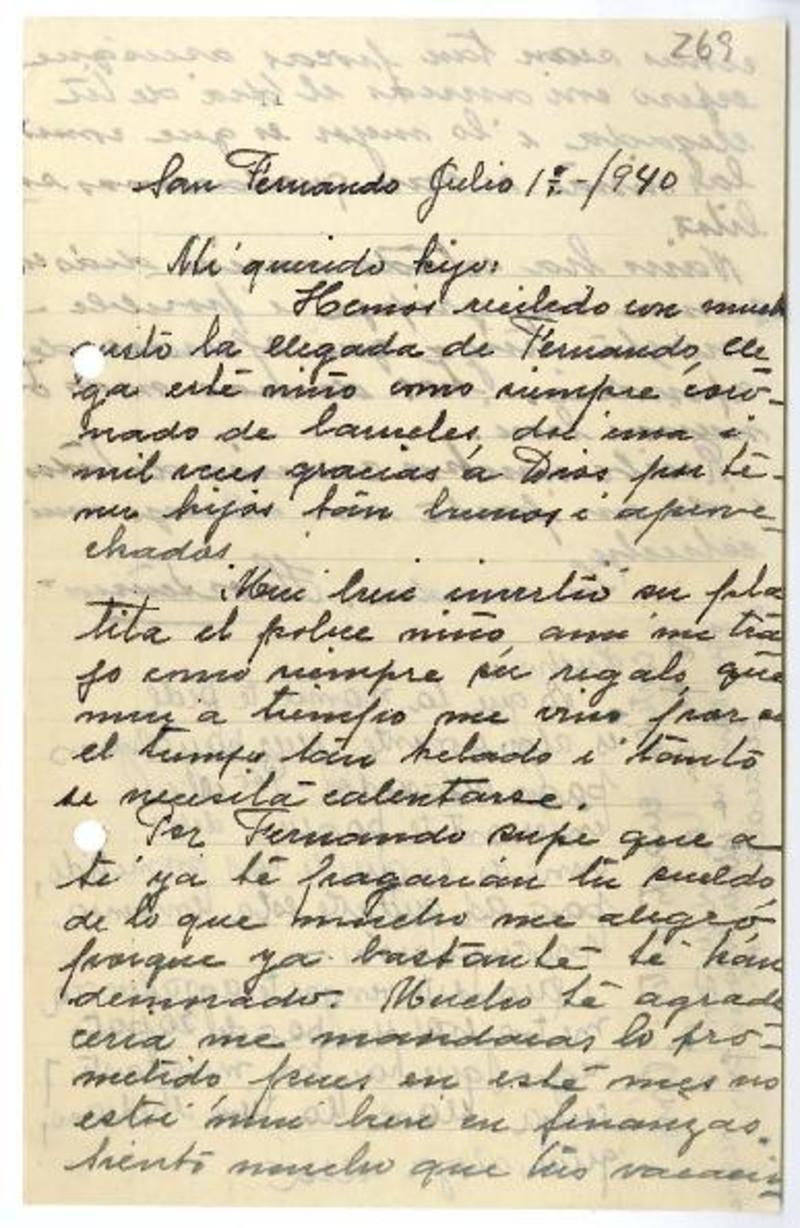 269
San Fernando Julio 1º-/940
Mi querido hijo:
Hemos recibido con much
gusto la llegada de Fernando, lle
ga esté niño como siempre coro-
nado de laureles, doi una i
mil veces gracias á Dios por té-
ner hijos tán buenos i aprove-
chados.
Mui bien invertió su pla
tita el pobre niño, ami me tra
jo como siempre su regalo, que
mui a tiempo me vino por
el tiempo tán helado i tánto
se necesita calentarse.
Por Fernando supe que a
ti ya té pagarián tu sueldo,
de lo que mucho me alegró
porque ya bastanté té hán
demorado. Mucho té agrade
ceria me mandaras lo pro-
metido pues en esté mes no
estoi mui bien en finanzas.
Siento mucho que tus vacacio